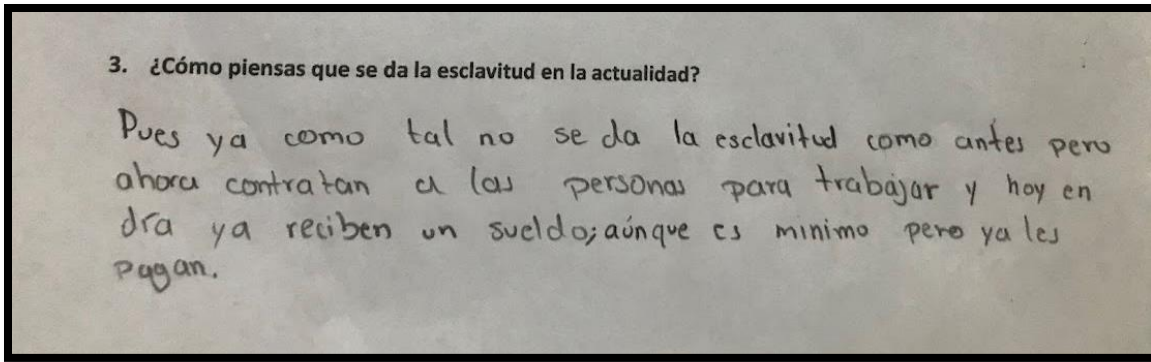 3. ¿Cómo piensas que se da la esclavitud en la actualidad?
Pues ya como tal no se da la esclavitud como antes pero
ahora contratan a las personas para trabajar y hoy en
día ya reciben un sueldo; aúnque es minimo pero ya les
pagan.